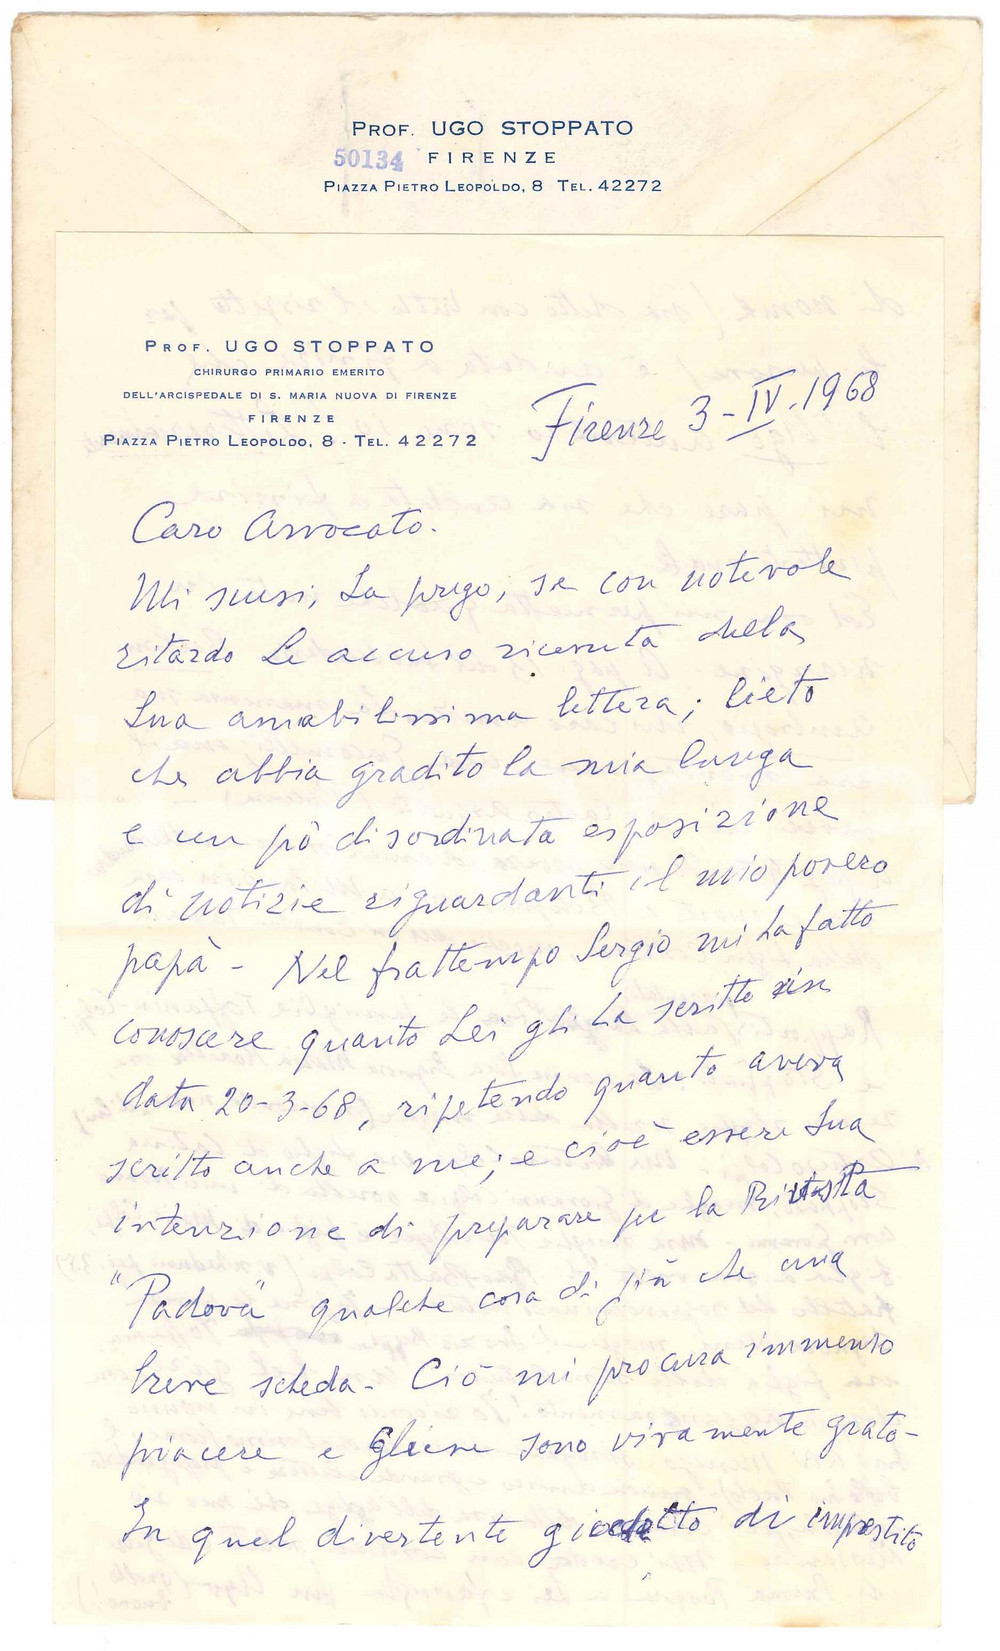 PROF. UGO STOPPATO
50134 FIRENZE
PIAZZA PIETRO LEOPOLDO, 8 TEL. 42272
PROF. UGO STOPPATO
CHIRURGO PRIMARIO EMERITO
DELL'ARCISPEDALE DI S. MARIA NUOVA DI FIRENZE
FIRENZE
PIAZZA PIETRO LEOPOLDO, 8 - TEL. 42272
Firenze 3-IV.1968
Caro Avvocato.
Mi scusi, La prego, se con notevole
ritardo Le accuso ricevuta della
Sua amabilissima lettera; lieto
che abbia gradito la mia lunga
e un pò disordinata esposizione
di notizie riguardanti il mio povero
papà - Nel frattempo Sergio mi ha fatto
conoscere quanto Lei gli ha scritto in
data 20-3-68, ripetendo quanto aveva
scritto anche a me; e cioè essere Sua
intenzione di preparare per la Rivista
"Padova" qualche cosa di più che una
breve scheda. Ciò mi procura immenso
piacere e Gliene sono vivamente grato-
In quel divertente di imprestito